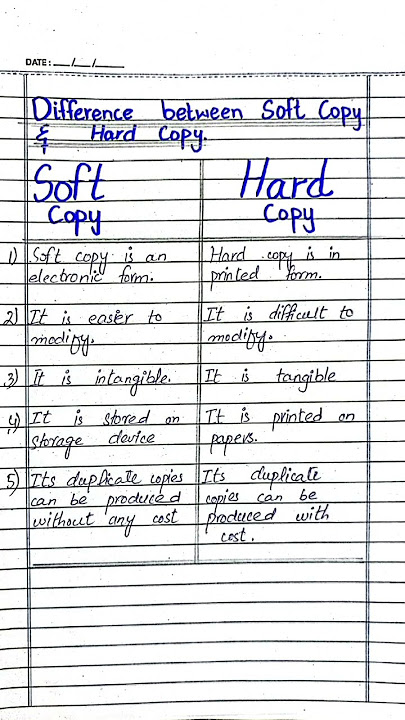 DATE: __/__/____
Difference between Soft Copy
& Hard Copy.
Soft
Copy
Hard
Copy
1) Soft copy is an
electronic form.
Hard copy is in
printed form.
2) It is easier to
modify.
It is difficult to
modify.
3) It is intangible.
It is tangible
4) It is stored on
storage device
It is printed on
papers.
5) Its duplicate copies
can be produced
without any cost
Its duplicate
copies can be
produced with
cost.